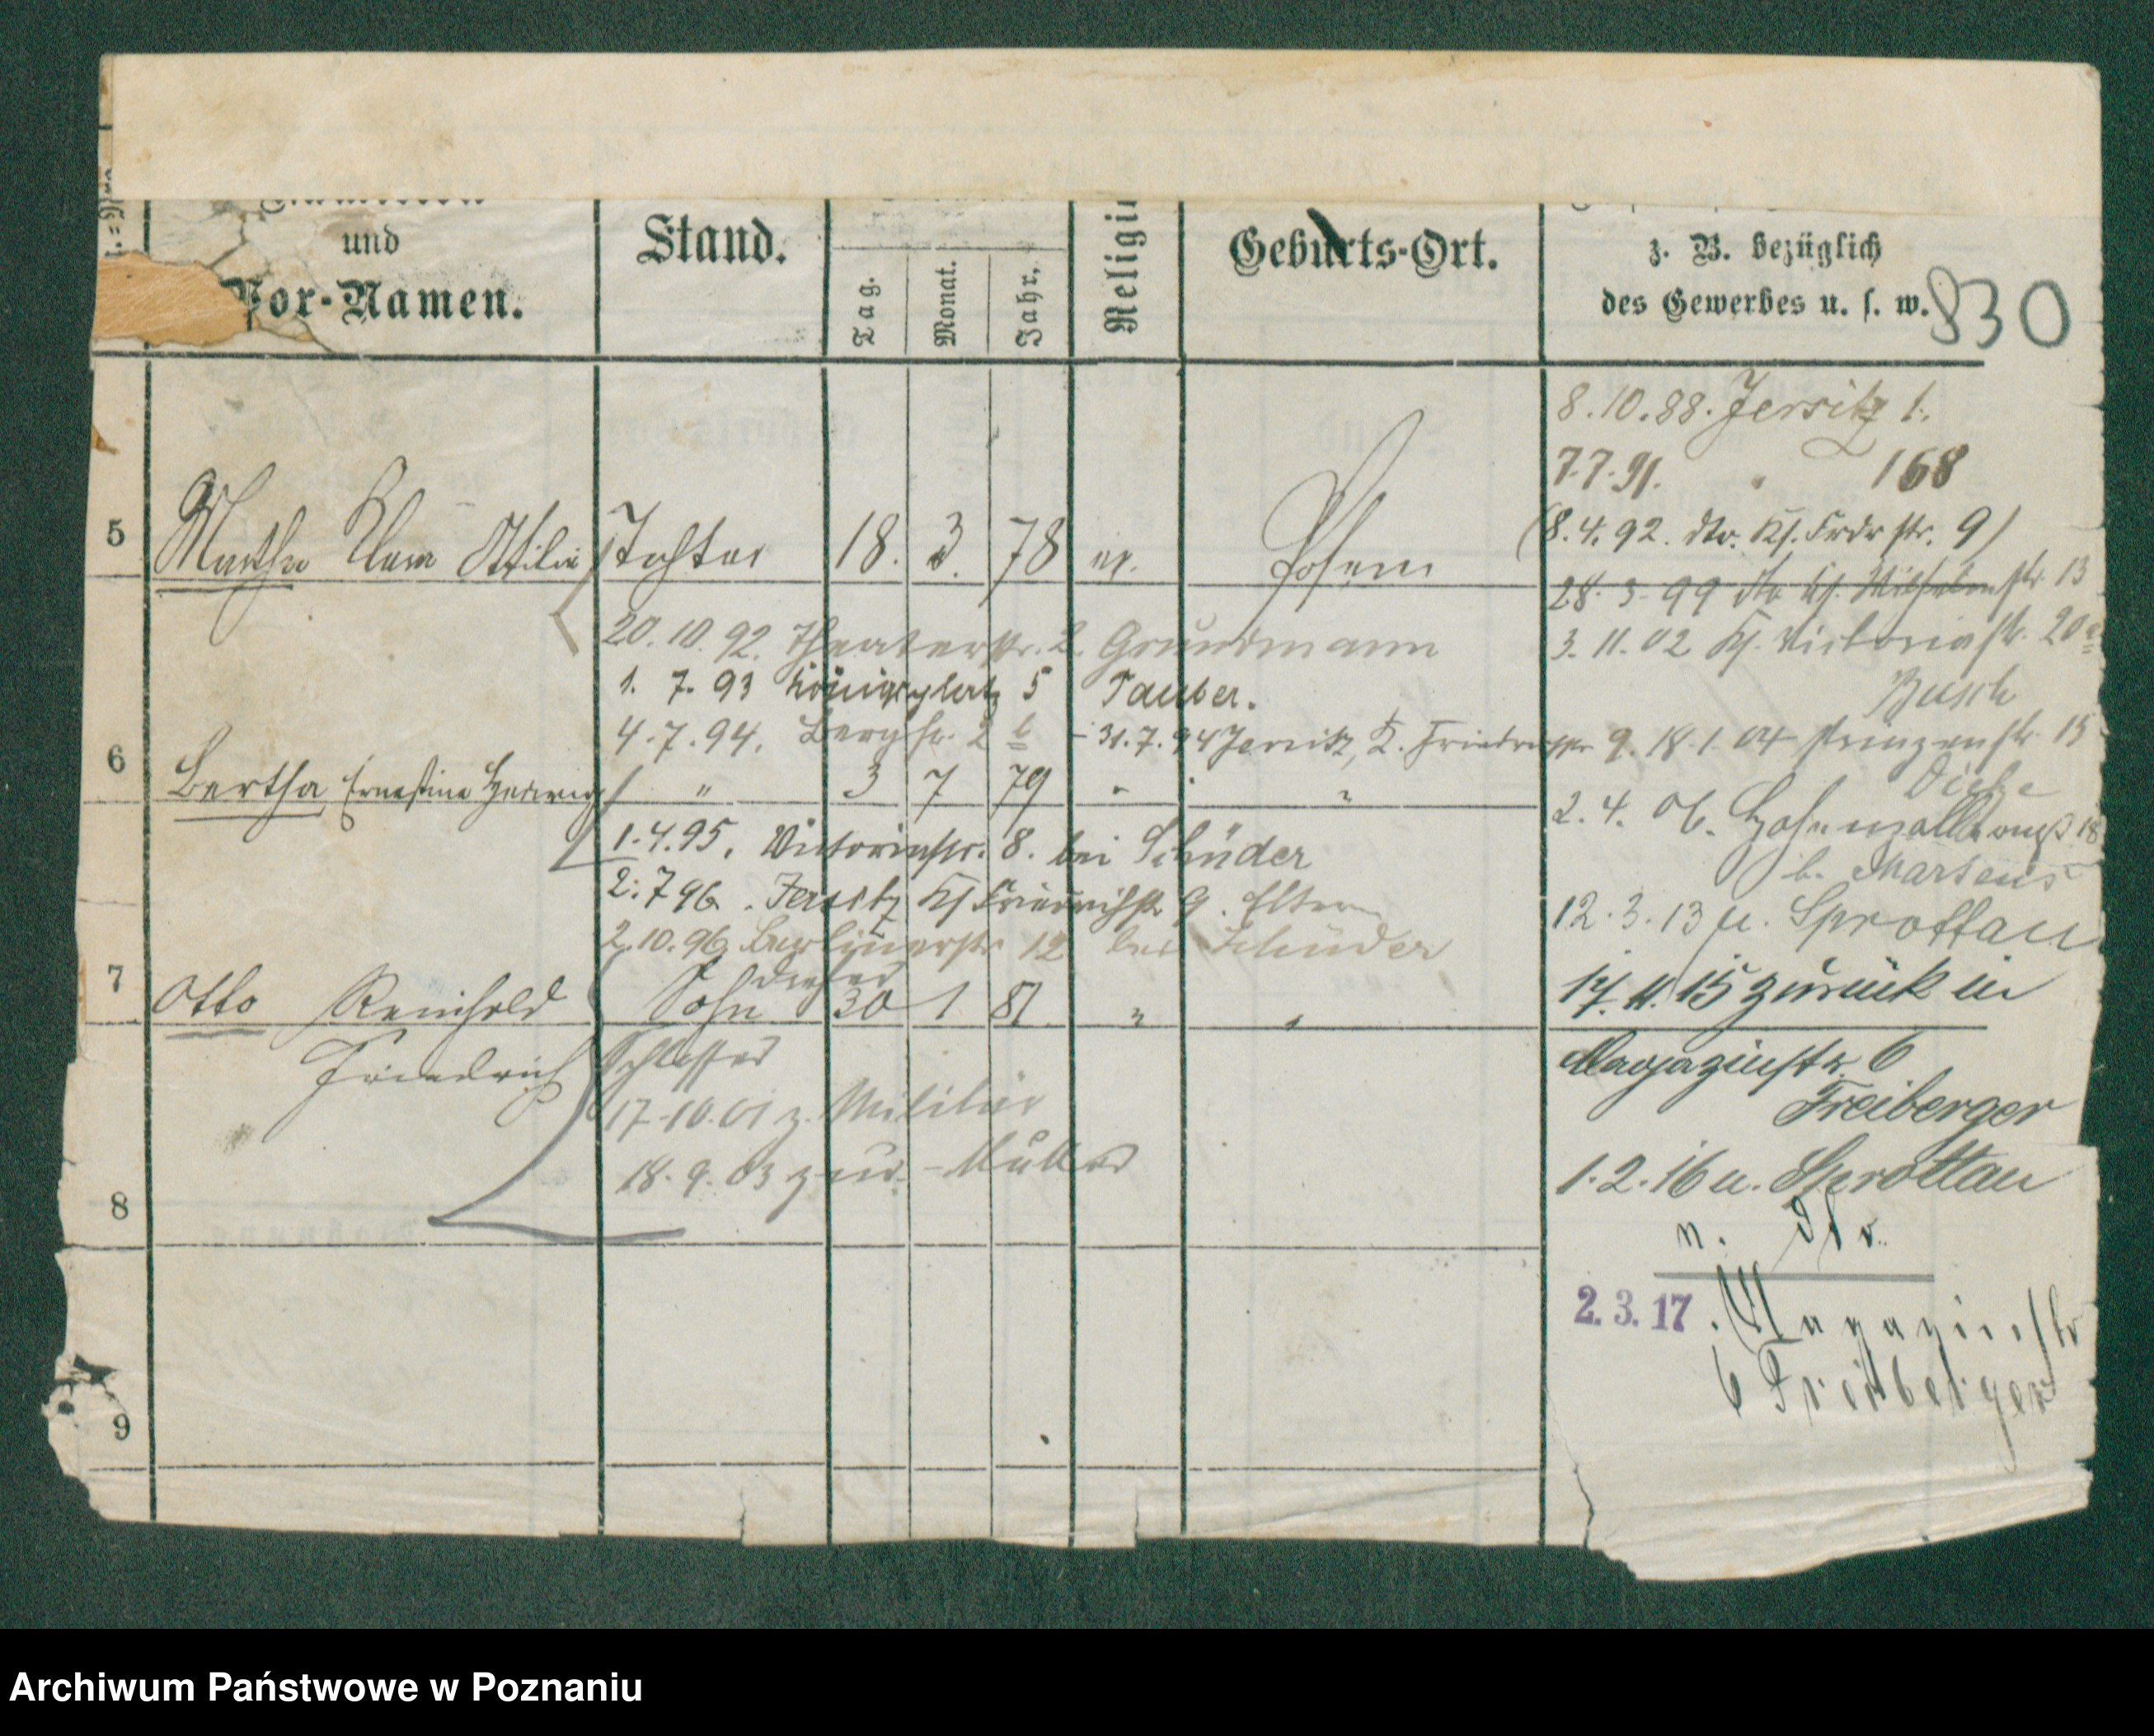 und
Vor-Namen.
Stand.
Tag.
Monat.
Jahr.
Religi
Geburts-Ort.
z. B. bezüglich
des Gewerbes u. s. w.
830
8.10.88. Jersitz 1.
7.7.91. " 168
5 Martha Clara Ottilie Tochter 18. 3. 78 ev. Posen
(8.4.92. dto. Ks. Frdr str. 9)
28. 3. 99 dto Ks. Wilhelmstr. 13
20.10.92. Theaterstr. 2. Grundmann
3. 11. 02 Ks. Victoriastr. 20
1. 7. 93 Königsplatz 5 Tauber.
Busch
4.7.94. Bergstr. 2 b - 31.7.94 Jersitz, K. Friedrichstr 9.
18.1.04 Prinzenstr. 15
6 Bertha Ernestine Hedwig " 3 7 79 " "
2. 4. 06. 18
1.4.95. Victoriastr. 8. bei Schüder
b. Martens
2.7 96. Jersitz Ks Friedrichstr 9. Eltern
12.3.13 u. Sprottau
2.10.96 Berlinerstr 12 bei Schüder
Dreher
7 Otto Reinhold Sohn 30 1 81 " "
17. 11. 15 zurück in
Friedrich Schlosser
Magazinstr. 6
Freiberger
17.10.01 z. Militär
18.9.03 zur. - Müller
1.2.16 u. Sprottau
8
n. dto.
2.3.17. Magazinstr
6 Freiberger
9
Archiwum Państwowe w Poznaniu